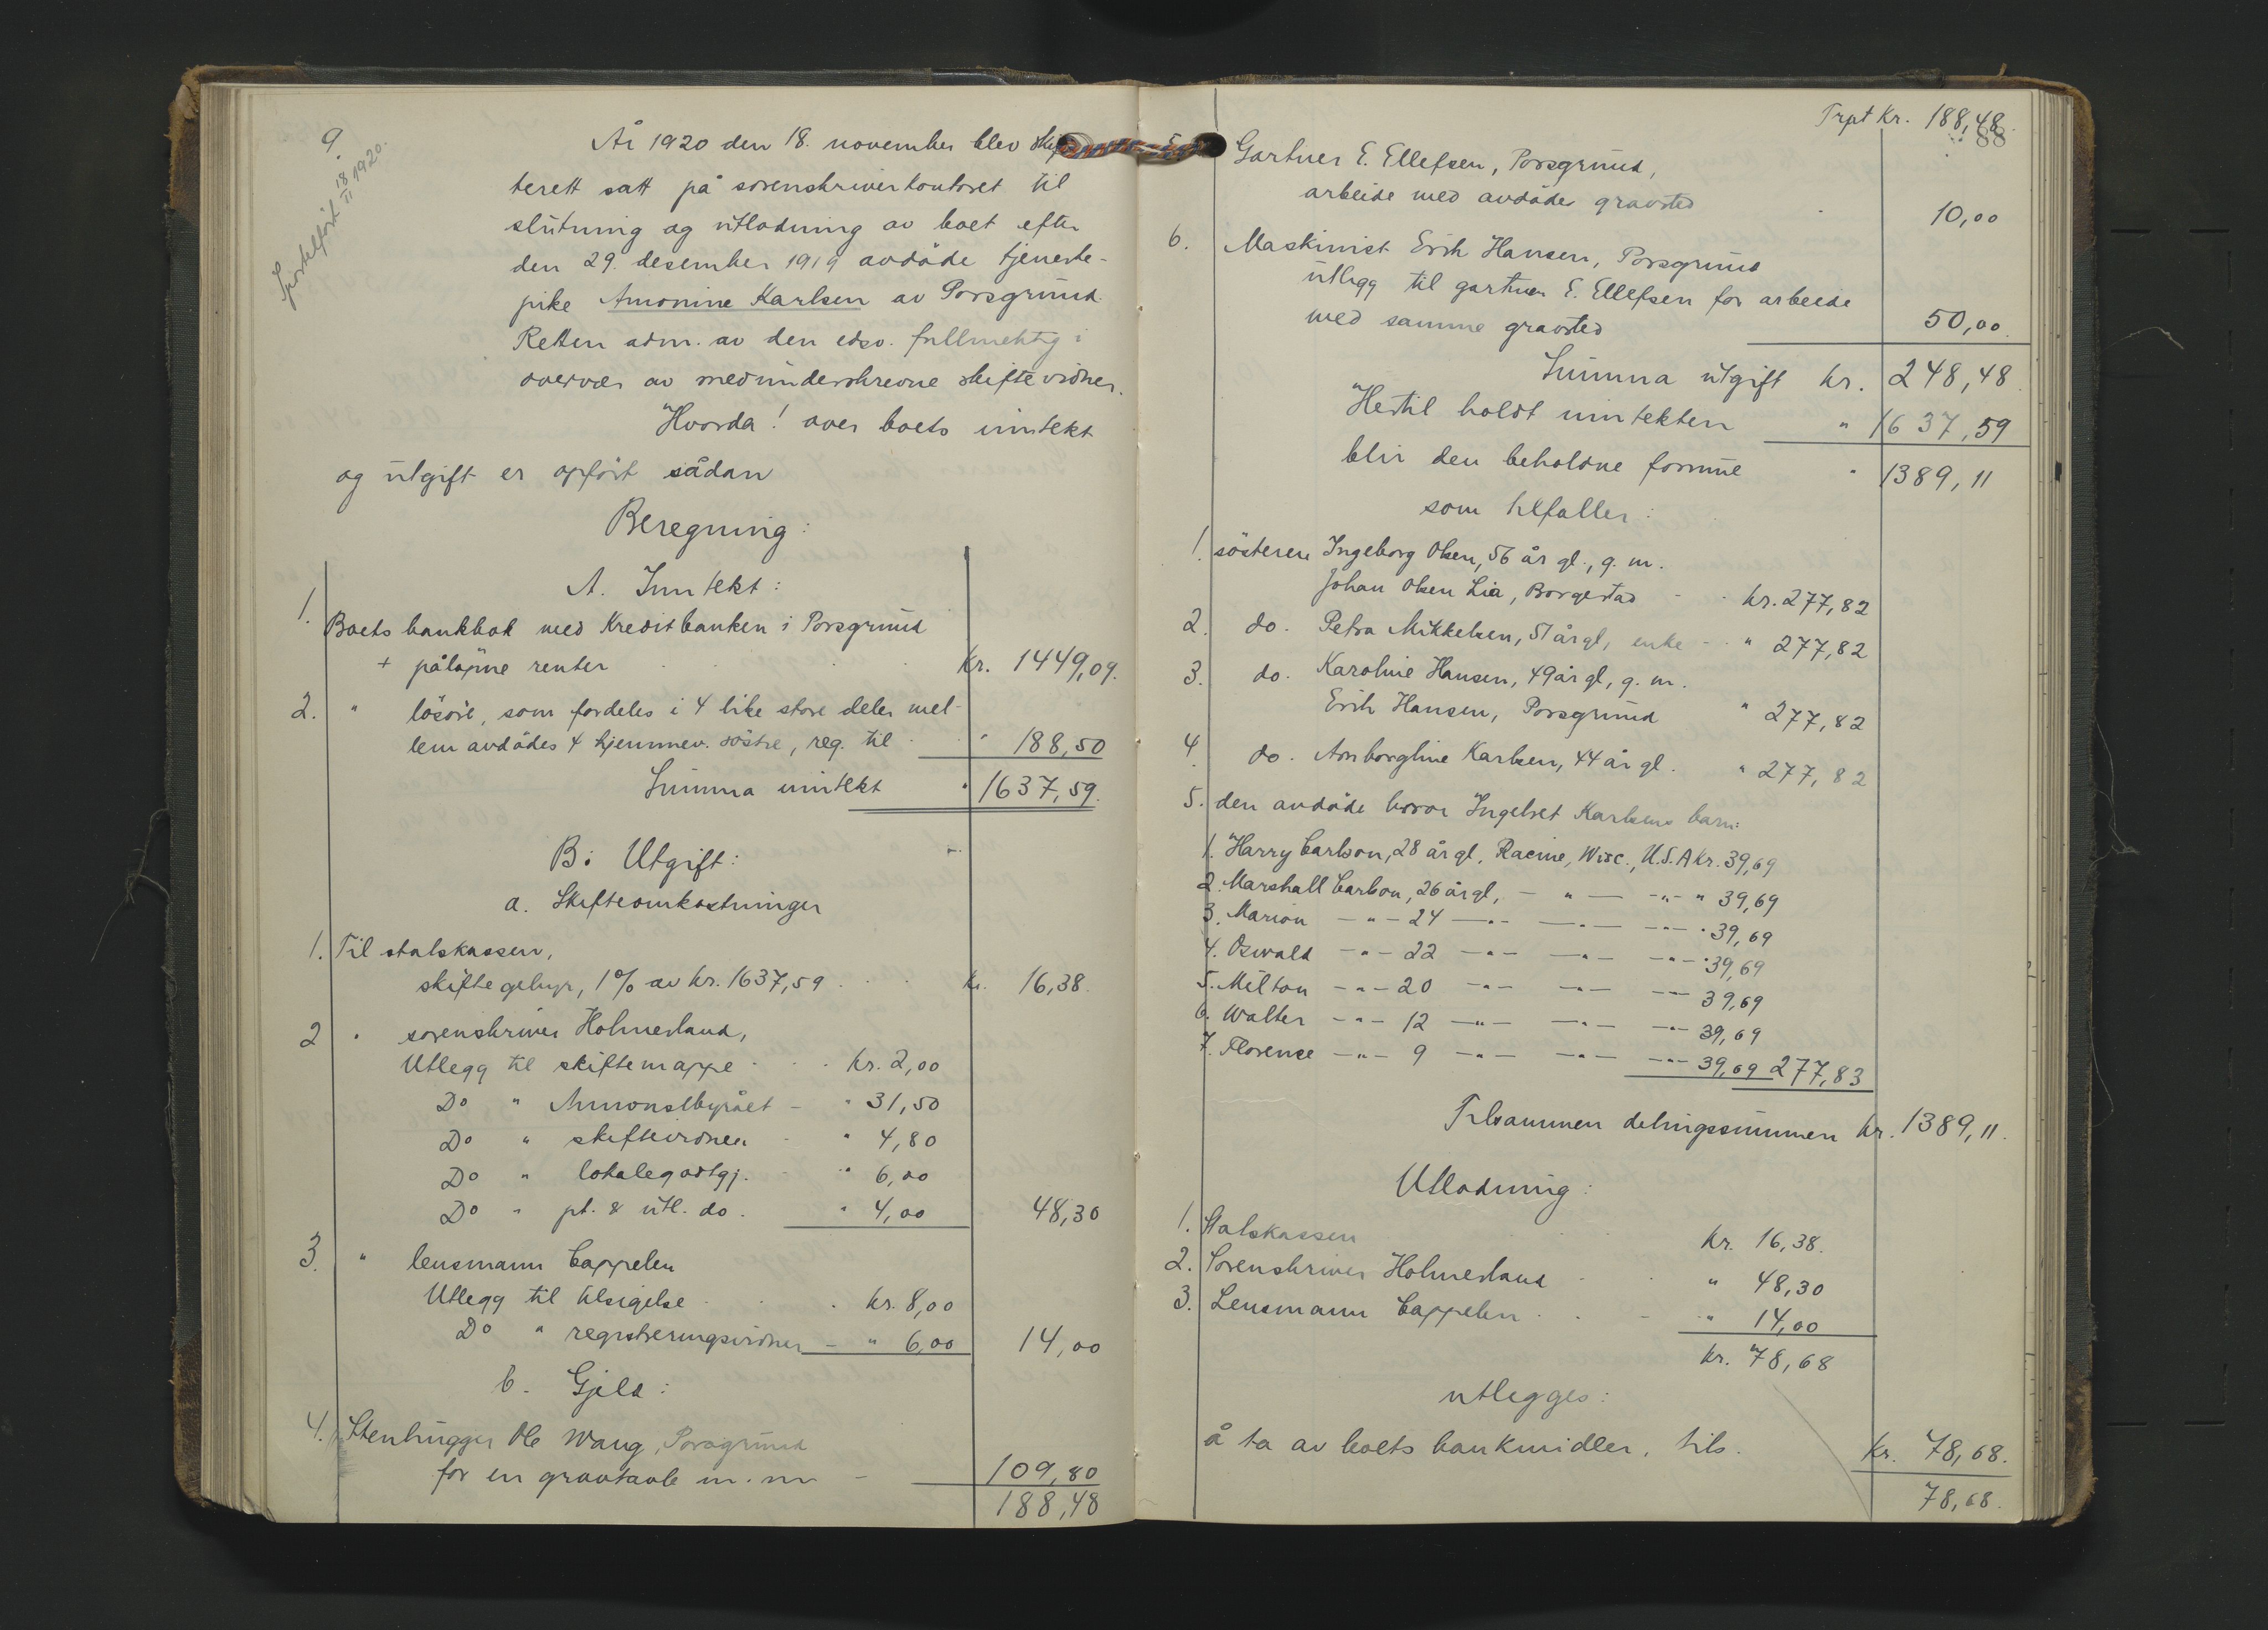 9.
Sportelført 18/11 1920.
År 1920 den 18. november blev skif-
terett satt på sorenskriverkontoret til
slutning og utlodning av boet efter
den 29. desember 1919 avdøde tjeneste-
pike Amonine Karlsen av Porsgrund.
Retten adm. av den edsv. fullmektig i
overvær av medunderskrevne skiftevidner.
Hvorda! over boets inntekt
og utgift er opført sådan
Beregning:
A. Inntekt:
1. Boets bankbok med Kreditbanken i Porsgrund
+ påløpne renter kr. 1449,09.
2. " løsøre, som fordeles i 4 like store deler mel-
lem avdødes 4 hjemmev. søstre, reg. til " 188,50
Summa inntekt " 1637,59.
B. Utgift:
a. Skifteomkostninger
1. Til statskassen,
skiftegebyr, 1% av kr. 1637,59 kr. 16,38.
2 " sorenskriver Holmesland,
Utlegg til skiftemappe kr. 2,00
Do " Annonsebyrået - " 31,50
Do " skiftevidner - " 4,80
Do " lokalegodtgj. - " 6,00
Do " pt. & utl. do. " 4,00 48,30
3. " lensmann Cappelen
Utlegg til tilsigelse kr. 8,00
Do " registreringsvidner - " 6,00 14,00
b. Gjeld:
4. Stenhugger Ole Wang, Porsgrund
for en gravtavle m.m - 109,80
188,48
Trpt kr. 188,48.
88
5. Gartner E. Ellefsen, Porsgrund,
arbeide med avdødes gravsted 10,00
6. Maskinist Erik Hansen, Porsgrund
utlegg til gartner E. Ellefsen for arbeide
med samme gravsted 50,00.
Summa utgift kr. 248,48.
Hertil holdt inntekten " 1637,59
blir den beholdne formue " 1389,11
som tilfaller:
1. søsteren Ingeborg Olsen, 56 år gl., g. m.
Johan Olsen Lia, Borgestad - kr. 277,82
2. do. Petra Mikkelsen, 51 år gl, enke - " 277,82
3. do. Karoline Hansen, 49 år gl, g. m.
Erik Hansen, Porsgrund " 277,82
4. do. Amborgline Karlsen, 44 år gl. " 277,82
5. den avdøde bror Ingebret Karlsens barn:
1. Harry Carlson, 28 år gl, Racine, Wisc., U.S.A kr. 39,69
2. Marshall Carlson, 26 år gl, - " - - " - " 39,69
3. Marion - " - 24 - " - - " - - " - " 39,69
4. Oswald - " - 22 - " - - " - - " - " 39,69
5. Milton - " - 20 - " - - " - - " - 39,69
6. Walter - " - 12 - " - - " - - " - 39,69
7. Florence - " - 9 - " - - " - - " - 39,69 277,83
Tilsammen delingssummen kr. 1389,11.
Utlodning:
1. Statskassen kr. 16,38.
2. Sorenskriver Holmesland " 48,30
3. Lensmann Cappelen " 14,00
kr. 78,68
utlegges:
å ta av boets bankmidler, tils. kr. 78,68.
78,68.